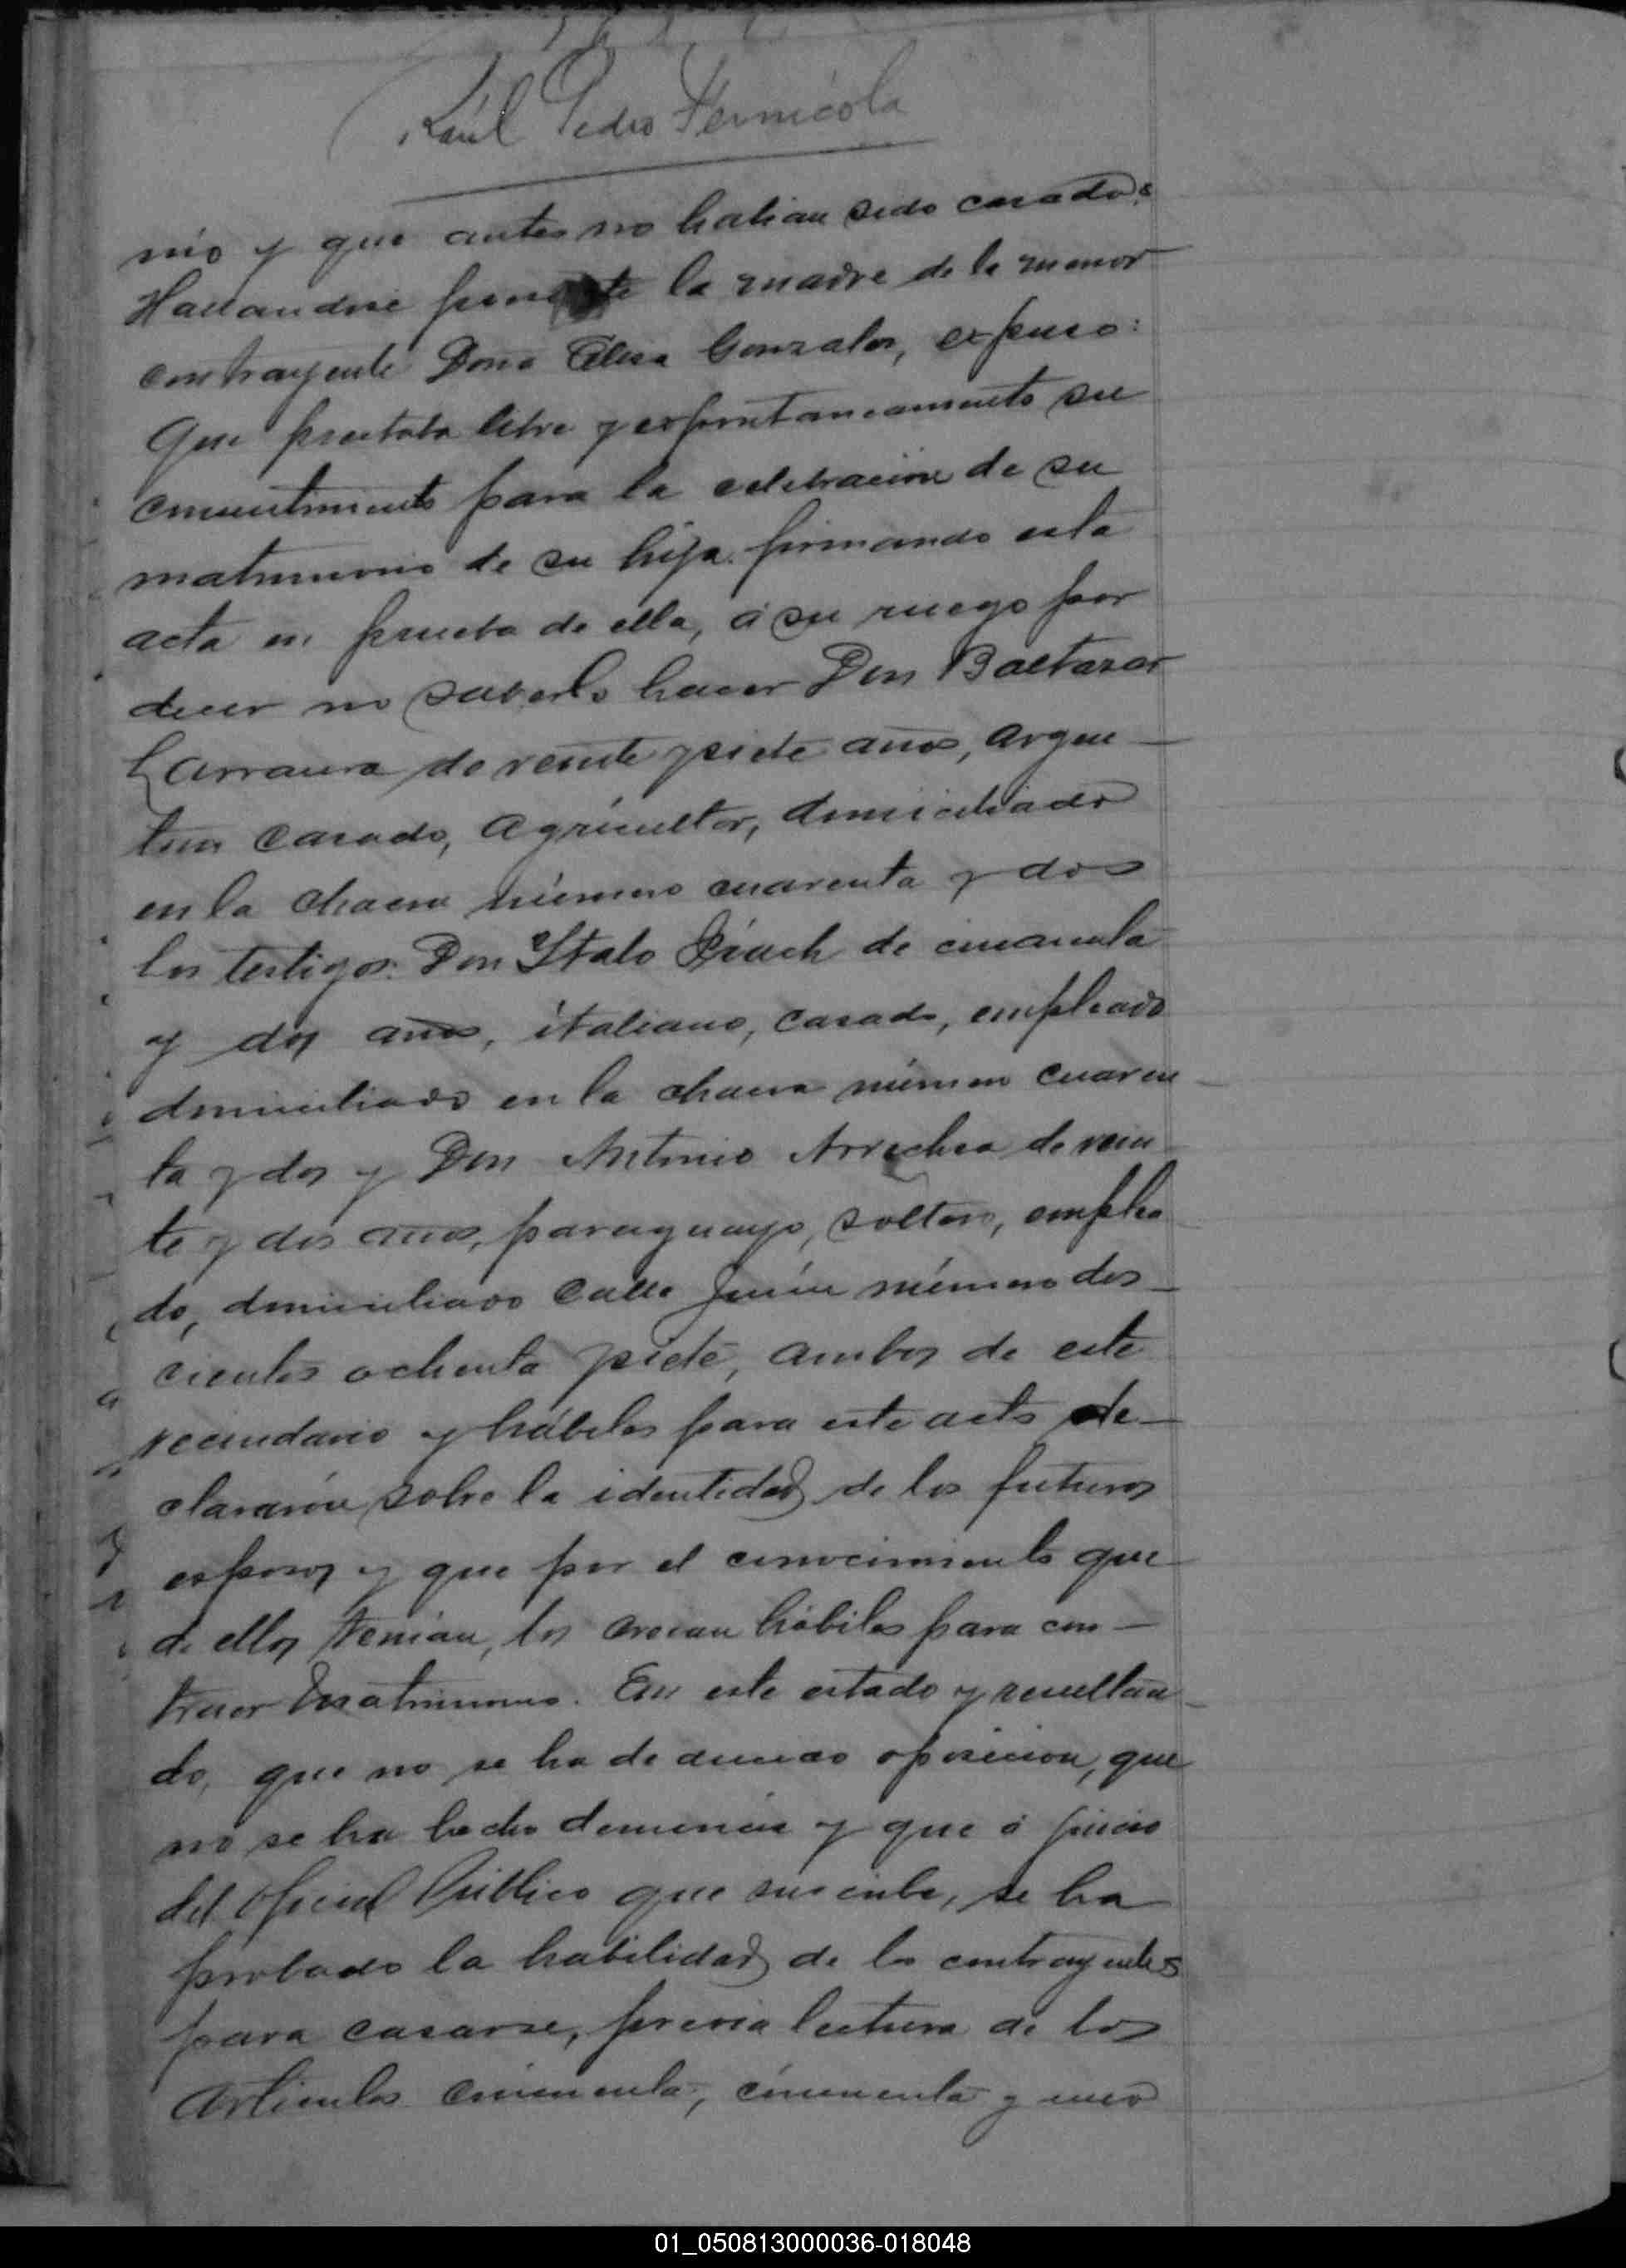 Raúl Pedro Fernícola
nio y que antes no habian sido casados.
Hallandose presente la madre de la menor
contrayente Doña Elisa Gonzales, expuso:
Que prestaba libre y expontaneamente su
consentimiento para la celebracion de su
matrimonio de su hija firmando esta
acta en prueba de ella, á su ruego por
decir no saberlo hacer Don Baltazar
Larraura de veinte y siete años, argen-
tino casado, agricultor, domiciliado
en la chacra número cuarenta y dos
los testigos: Don Italo de cincuenta
y dos años, italiano, casado, empleado
domiciliado en la chacra número cuaren-
ta y dos y Don Antonio Arrechea de vein-
te y dos años, paraguayo, soltero, emplea
do, domiciliado calle Junín número dos-
cientos ochenta y siete, ambos de este
vecindario y hábiles para este acto de-
clararón sobre la identidad de los futuros
esposos y que por el conocimiento que
de ellos tenían, los creían hábiles para con-
traer matrimonio. En este estado y resultan-
do, que no se ha deducido oposicion, que
no se ha hecho denuncia y que á juicio
del Oficial Público que suscribe, se ha
probado la habilidad de los contrayentes
para casarse, previa lectura de los
artículos cincuenta, cincuenta y uno
01_050813000036-018048